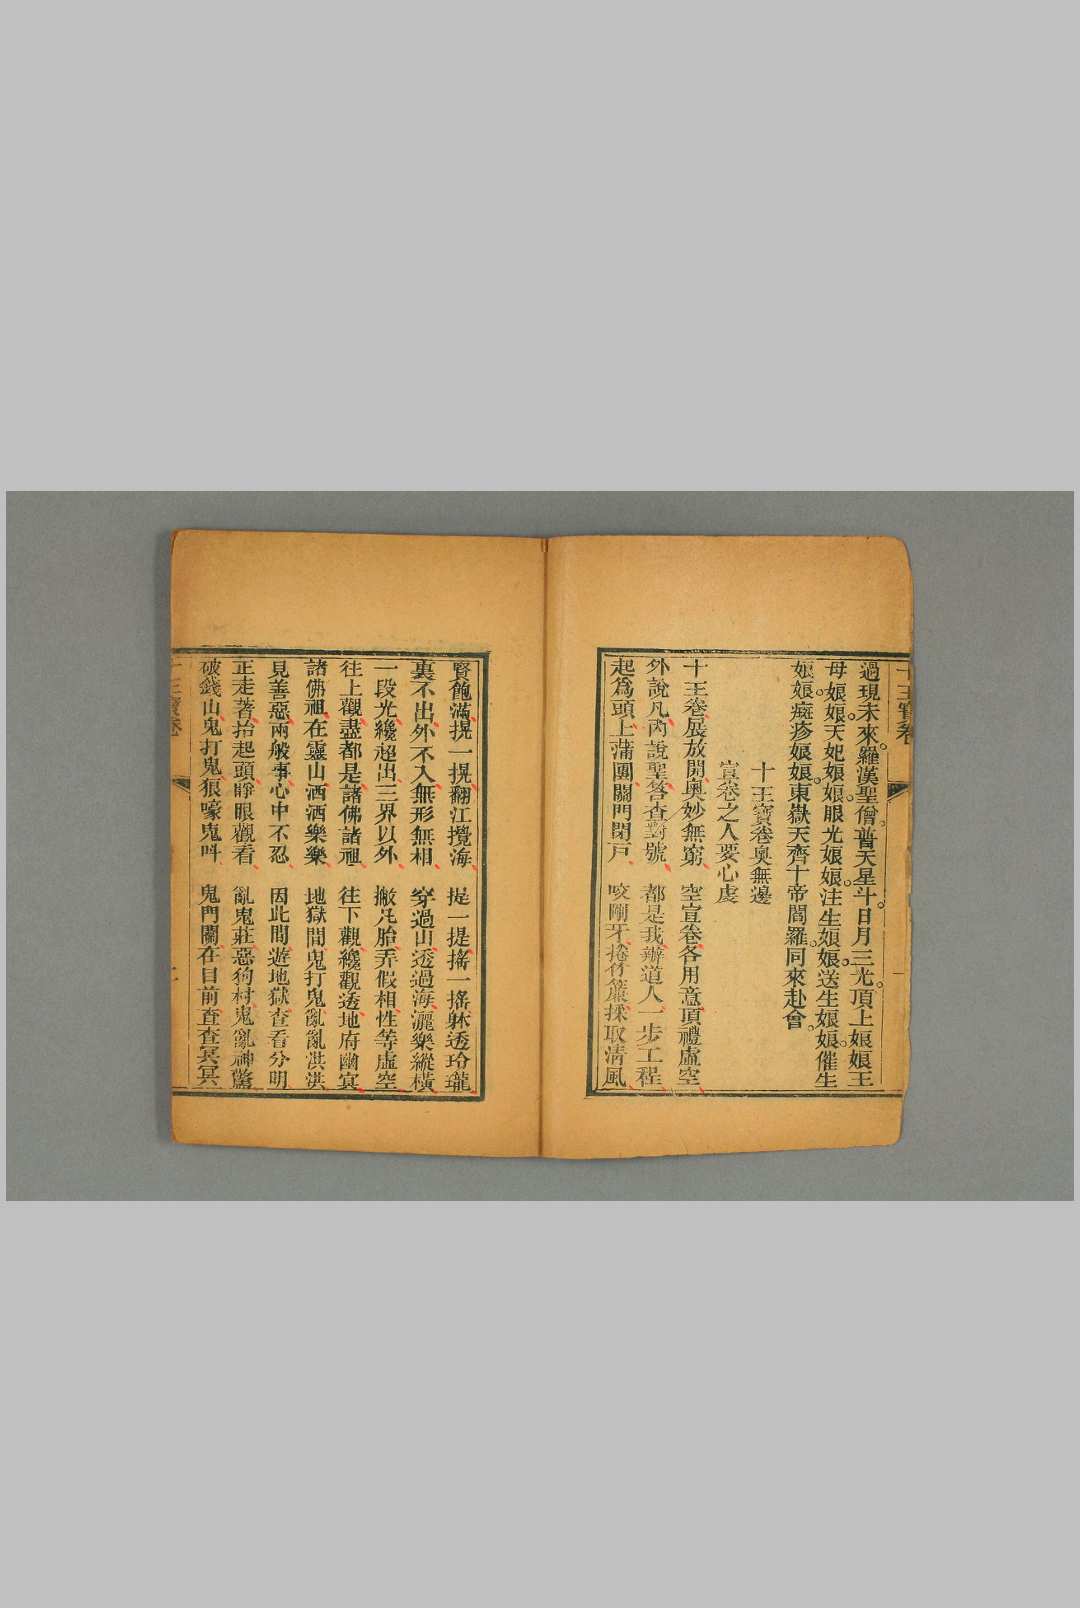 十王寳卷
過現未來羅漢聖僧。普天星斗。日月三光。頂上娘娘王
母娘娘。天妃娘娘。眼光娘娘。注生娘娘。送生娘娘。催生
娘娘。癍疹娘娘。東嶽天齊十帝閻羅。同來赴會。
十王寳卷奥無邊
宣卷之人要心虔
十王卷展放開奥妙無窮 空宣卷各用意頂禮虛空
外說凡內說聖答查對號 都是我辦道人一步工程
起爲頭上蒲團關門閉戸 咬剛牙捲竹簾採取清風
賢飽滿提一提翻江攪海 提一提搖一搖躰透玲瓏
裏不出外不入無形無相 穿過山透過海灑樂縱橫
一段光纔超出三界以外 撇凡胎弄假相性等虛空
往上觀盡都是諸佛諸祖 往下觀纔觀透地府幽宾
諸佛祖在靈山洒洒樂樂 地獄間鬼打鬼亂亂洪洪
見善惡兩般事心中不忍 因此間遊地獄查看分明
正走著抬起頭睜眼觀看 亂鬼莊惡狗村鬼亂神驚
破錢山鬼打鬼狼嚎鬼呌 鬼門關在目前查查冥冥
十王寳卷